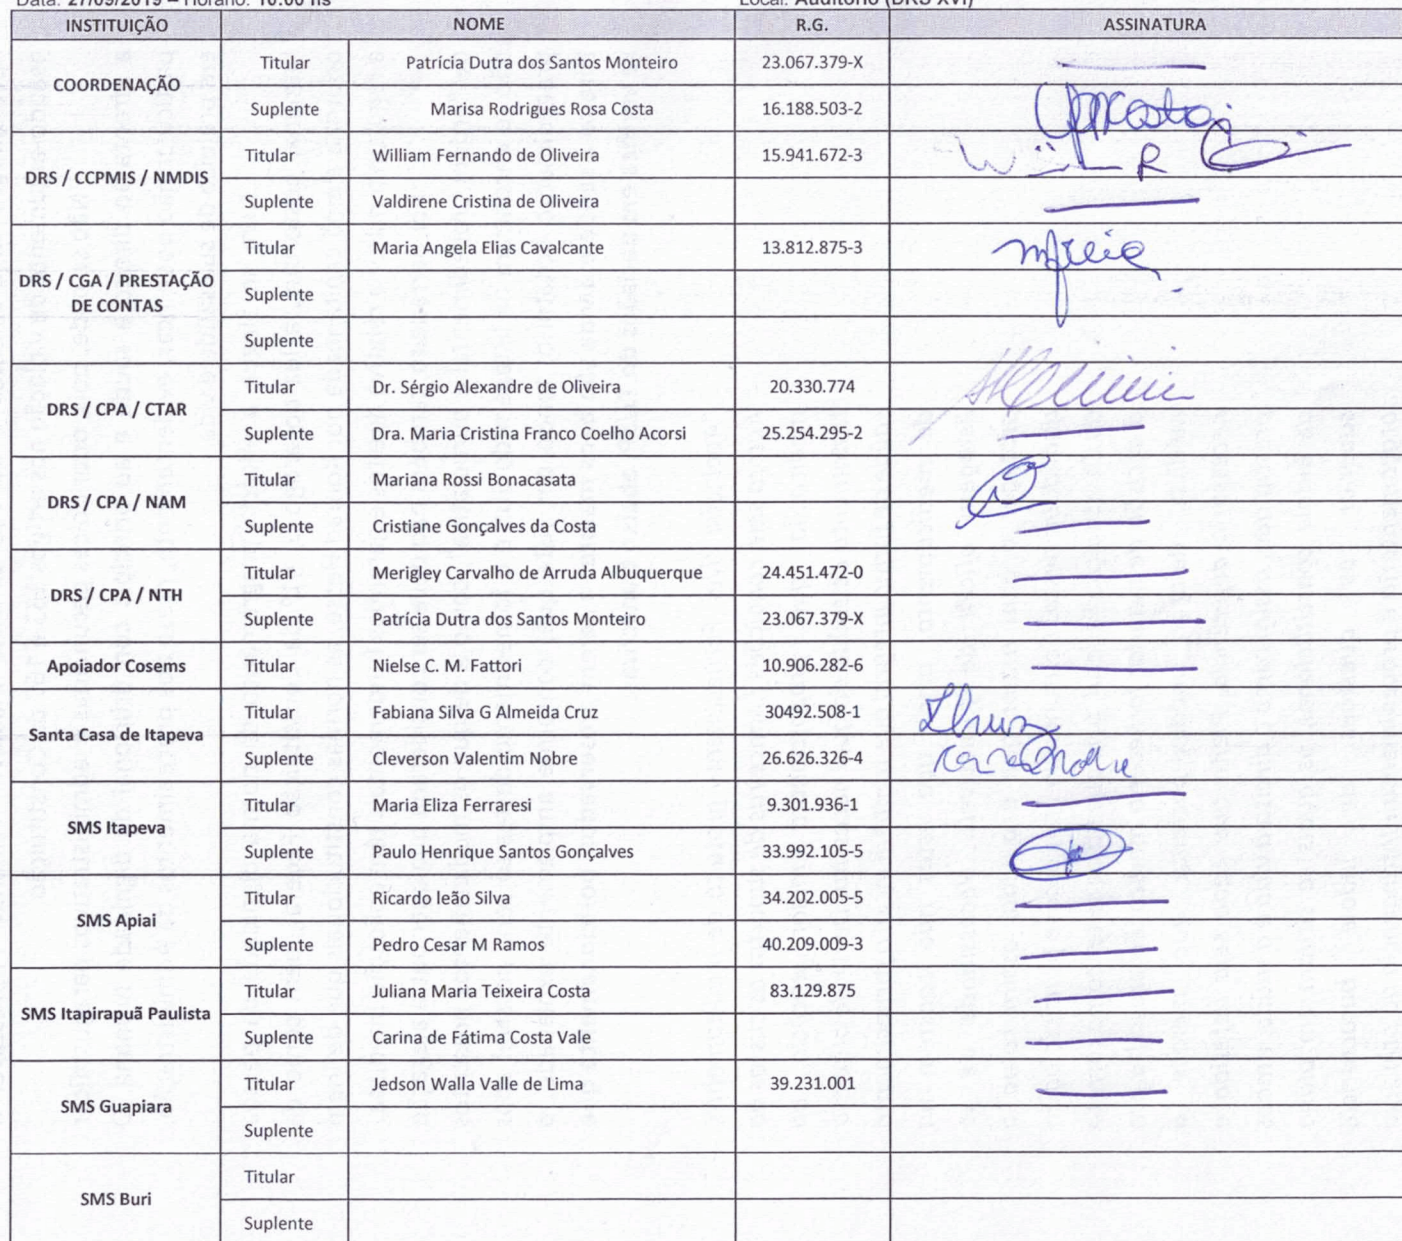 Data: 27/09/2019 – Horário: 10:00 hs Local: Auditório (DRS XVI)
INSTITUIÇÃO NOME R.G. ASSINATURA
COORDENAÇÃO
Titular Patrícia Dutra dos Santos Monteiro 23.067.379-X
Suplente Marisa Rodrigues Rosa Costa 16.188.503-2
DRS / CCPMIS / NMDIS
Titular William Fernando de Oliveira 15.941.672-3
Suplente Valdirene Cristina de Oliveira
DRS / CGA / PRESTAÇÃO
DE CONTAS
Titular Maria Angela Elias Cavalcante 13.812.875-3
Suplente
Suplente
DRS / CPA / CTAR
Titular Dr. Sérgio Alexandre de Oliveira 20.330.774
Suplente Dra. Maria Cristina Franco Coelho Acorsi 25.254.295-2
DRS / CPA / NAM
Titular Mariana Rossi Bonacasata
Suplente Cristiane Gonçalves da Costa
DRS / CPA / NTH
Titular Merigley Carvalho de Arruda Albuquerque 24.451.472-0
Suplente Patrícia Dutra dos Santos Monteiro 23.067.379-X
Apoiador Cosems Titular Nielse C. M. Fattori 10.906.282-6
Santa Casa de Itapeva
Titular Fabiana Silva G Almeida Cruz 30492.508-1
Suplente Cleverson Valentim Nobre 26.626.326-4
SMS Itapeva
Titular Maria Eliza Ferraresi 9.301.936-1
Suplente Paulo Henrique Santos Gonçalves 33.992.105-5
SMS Apiai
Titular Ricardo leão Silva 34.202.005-5
Suplente Pedro Cesar M Ramos 40.209.009-3
SMS Itapirapuã Paulista
Titular Juliana Maria Teixeira Costa 83.129.875
Suplente Carina de Fátima Costa Vale
SMS Guapiara
Titular Jedson Walla Valle de Lima 39.231.001
Suplente
SMS Buri
Titular
Suplente